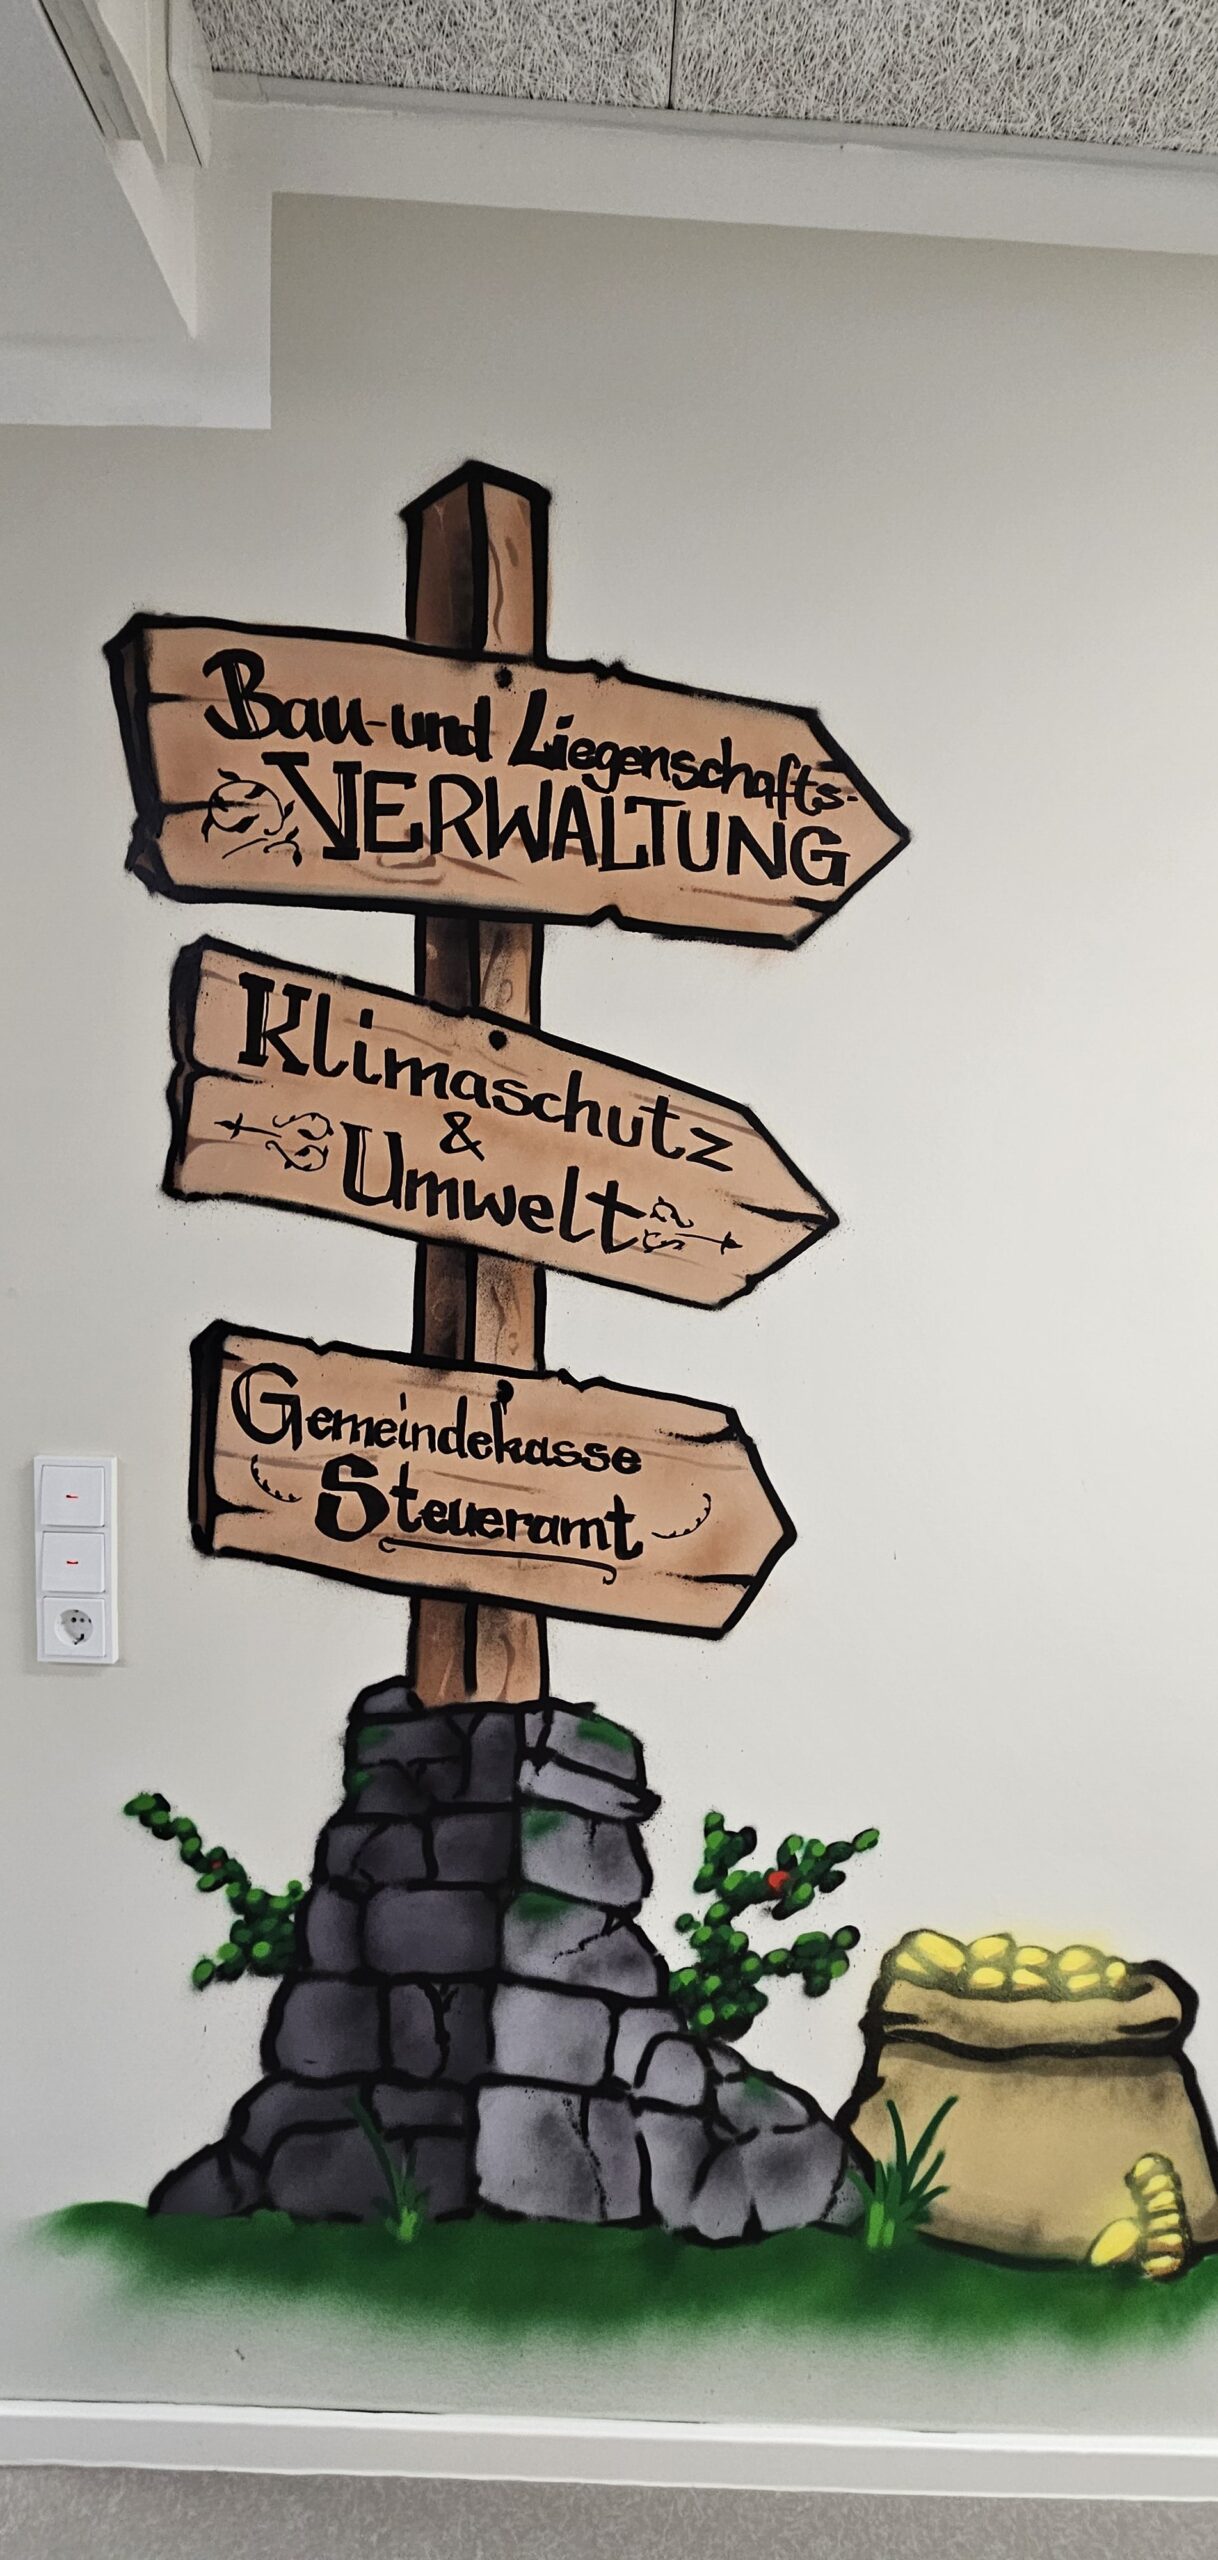 Bau-und Liegenschafts-
VERWALTUNG
Klimaschutz
&
Umwelt
Gemeindekasse
Steueramt